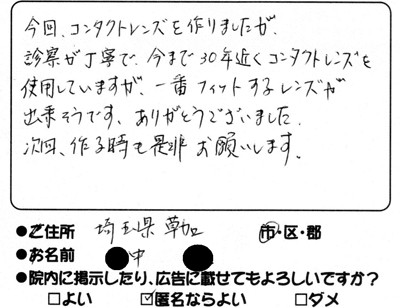 今回、コンタクトレンズを作りましたが、
診察が丁寧で、今まで30年近くコンタクトレンズを
使用していますが、一番フィットするレンズが
出来そうです、ありがとうございました。
次回、作る時も是非お願いします。
●ご住所 埼玉県草加 市・区・郡
●お名前 中
●院内に掲示したり、広告に載せてもよろしいですか？
□よい ☑匿名ならよい □ダメ